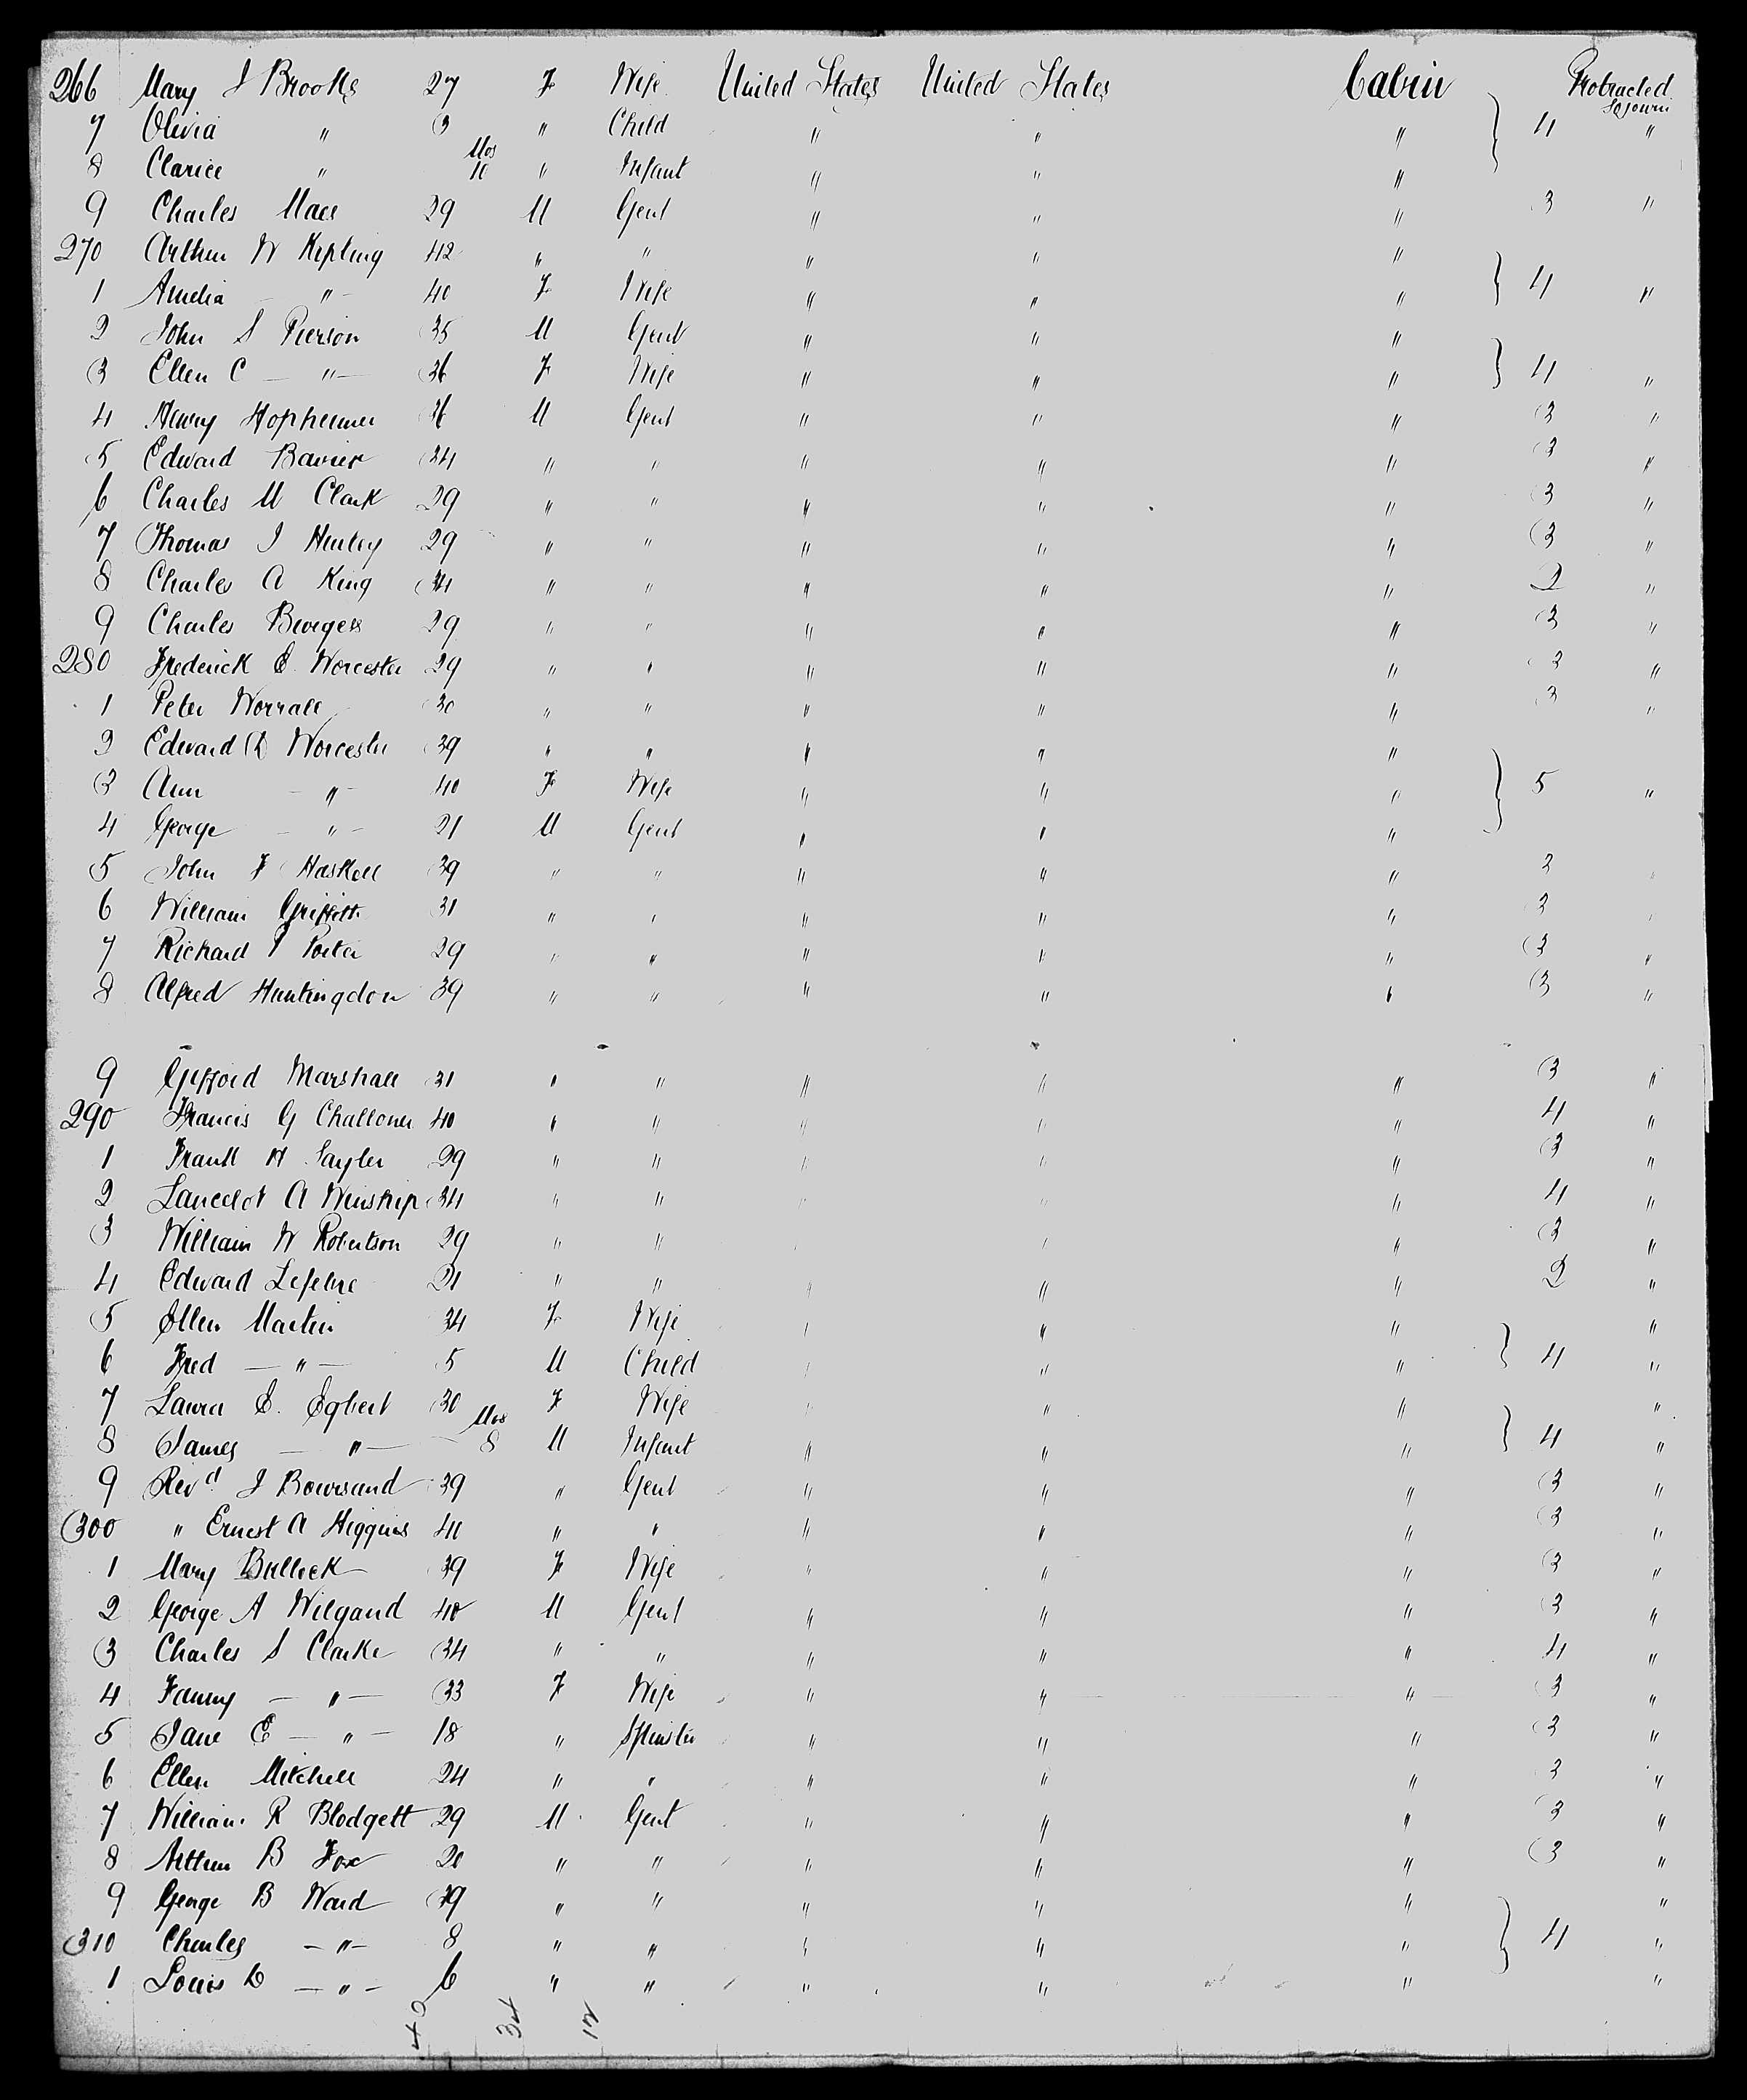 266 Mary J Brooks 27 F Wife United States United States Cabin Protracted Sojourn
7 Olivia " 3 " Child " " " } 4 "
8 Clarice " Mos 10 " Infant " " "
9 Charles Mace 29 M Gent " " " 3 "
270 Arthur W Kipling 42 " " " " "
1 Amelia " 40 F Wife " " " } 4 "
2 John S Pierson 35 M Gent " " "
3 Ellen C " 36 F Wife " " " } 4 "
4 Henry Hopheimer 36 M Gent " " " 3 "
5 Edward Bavier 34 " " " " " 3 "
6 Charles M Clark 29 " " " " " 3 "
7 Thomas J Hurley 29 " " " " " 3 "
8 Charles A King 34 " " " " " 2 "
9 Charles Burgess 29 " " " " " 3 "
280 Frederick E. Worcester 29 " " " " " 3 "
1 Peter Worrall 30 " " " " " 3 "
2 Edward D Worcester 39 " " " " "
3 Ann " 40 F Wife " " " } 5 "
4 George " 21 M Gent " " "
5 John F Haskell 39 " " " " " 3 "
6 William Griffith 31 " " " " " 3 "
7 Richard P Porter 29 " " " " " 3 "
8 Alfred Huntingdon 39 " " " " " 3 "
9 Gifford Marshall 31 " " " " " 3 "
290 Francis G Challoner 40 " " " " " 4 "
1 Frank H Sayler 29 " " " " " 3 "
2 Lancelot A Winship 34 " " " " " 4 "
3 William W Robertson 29 " " " " " 3 "
4 Edward Lefebre 21 " " " " " 2 "
5 Ellen Martin 34 F Wife " " " "
6 Fred " 5 M Child " " " } 4 "
7 Laura E. Egbert 30 F Wife " " " "
8 James " Mos 8 M Infant " " " } 4 "
9 Revd J 39 " Gent " " " 3 "
300 " Ernest A Higgins 40 " " " " " 3 "
1 Mary Bullock 39 F Wife " " " 3 "
2 George A Wiegand 40 M Gent " " " 3 "
3 Charles S Clarke 34 " " " " " 4 "
4 Fanny " 33 F Wife " " " 3 "
5 Jane E " 18 " Spinster " " " 3 "
6 Ellen Mitchell 24 " " " " " 3 "
7 William R Blodgett 29 M Gent " " " 3 "
8 Arthur B Fox 20 " " " " " 3 "
9 George B Ward 39 " " " " " "
310 Charles " 8 " " " " " } 4 "
1 Louis D " 6 " " " " " "
34 12